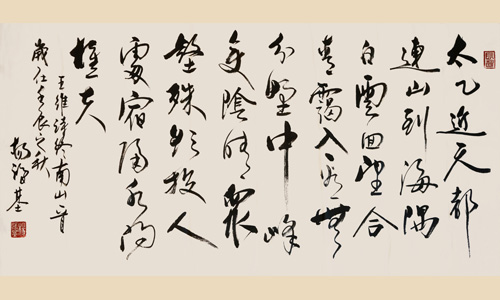 太乙近天都
連山到海隅
白雲回望合
青靄入看無
分野中峰
變陰晴眾
壑殊欲投人
處宿隔水問
樵夫
王維詩終南山一首
歲在壬辰之秋
楊 基